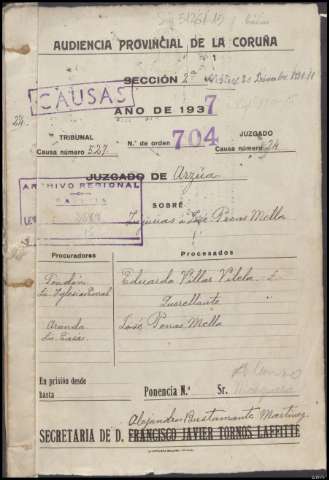 AUDIENCIA PROVINCIAL DE LA CORUÑA
SECCIÓN 2ª
CAUSAS
AÑO DE 1937
TRIBUNAL
Causa número 527
N.º de orden 704
JUZGADO
Causa número 24
JUZGADO DE Arzúa
ARCHIVO REGIONAL
GALICIA
SOBRE
Injurias a José Penas Mella
Procuradores
Procesados
Eduardo Villar Vilela
Querellante
Aranda
José Penas Mella
En prisión desde
hasta
Ponencia N.º
Sr.
Alejandro Bustamante Martínez
SECRETARIA DE D. FRANCISCO JAVIER TORNOS LAFFITTE